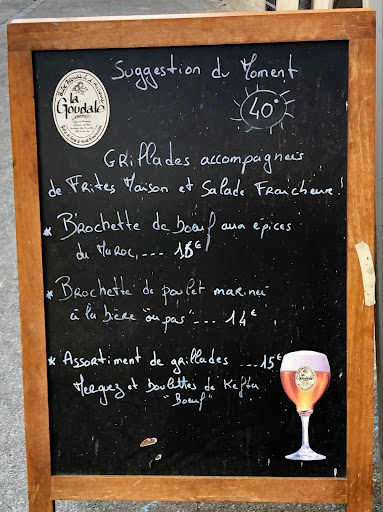 la
Goudale
Suggestion du Moment
40°
Grillades accompagnées
de Frites Maison et Salade Fraîcheur!
* Brochette de bœuf aux épices
du Maroc, --- 16€
* Brochette de poulet mariné
à la bière "ou pas" --- 14€
* Assortiment de grillades --- 15€
Merguez et boulettes de Kefta
"Bœuf"